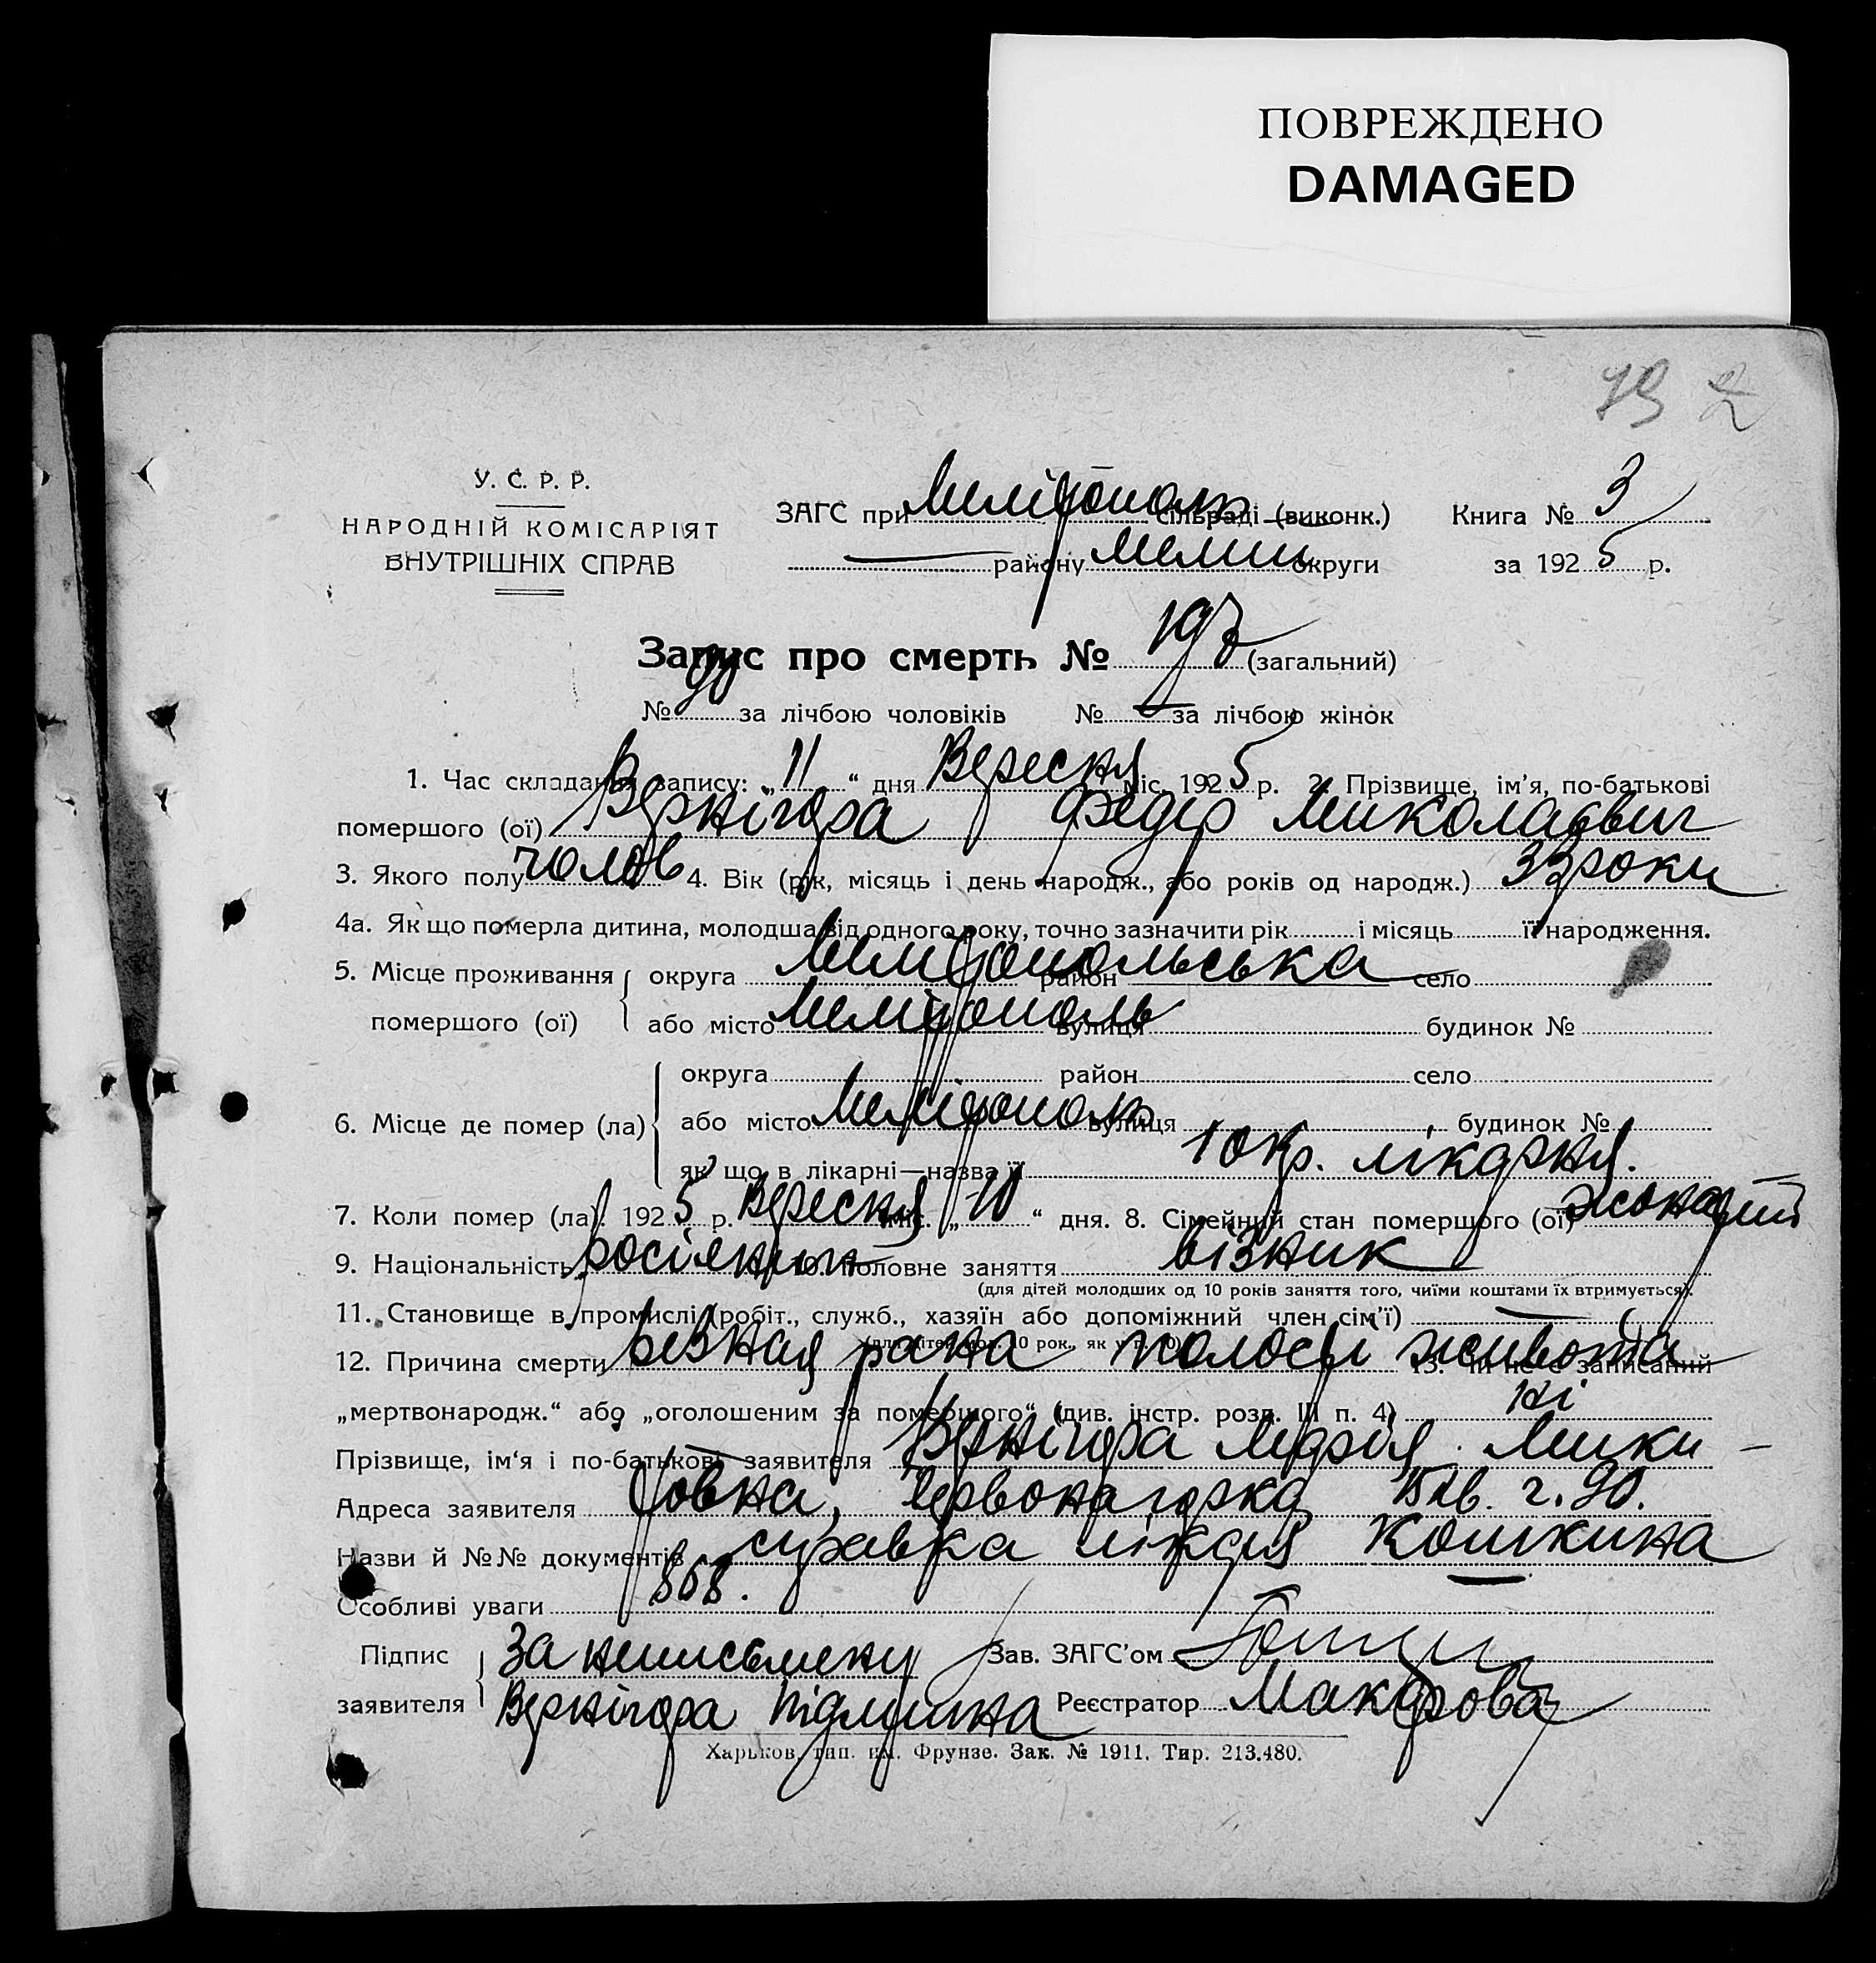 ПОВРЕЖДЕНО
DAMAGED
У. С. Р. Р.
НАРОДНІЙ КОМІСАРІЯТ
ВНУТРІШНІХ СПРАВ
ЗАГС при Мелітополь сільраді (виконк.) Книга № 3
району Мелит округи за 1925 р.
Запис про смерть № (загальний)
№ 90 за лічбою чоловіків № за лічбою жінок
1. Час складання запису: „11“ дня Вересня міс. 1925 р. 2. Прізвище, ім'я, по-батькові
помершого (ої) Вернігора Федір Миколаєвич
3. Якого полу чолов 4. Вік (рік, місяць і день народж., або років од народж.) 33 роки
4а. Як що померла дитина, молодша від одного року, точно зазначити рік і місяць її народження.
5. Місце проживання округа Мелітопольська район село
помершого (ої) або місто Мелітополь вулиця будинок №
округа район село
6. Місце де помер (ла) або місто Мелітополь вулиця будинок №
як що в лікарні—назва її 1 окр. лікарня.
7. Коли помер (ла): 1925 р. Вересня міс. „10“ дня. 8. Сімейний стан помершого (ої) жонатий
9. Національність росіянин 10. Головне заняття візник
(для дітей молодших од 10 років заняття того, чиїми коштами їх втримується).
11. Становище в промислі (робіт., служб., хазяїн або допоміжний член сім'ї)
(для дітей мол. 10 рок., як у п. 10)
12. Причина смерти рана полості живота 13. Чи не є записаний
„мертвонародж.“ або „оголошеним за помершого“ (див. інстр. розд. III п. 4) ні
Прізвище, ім'я і по-батькові заявителя Вернігора Марія Мики-
Адреса заявителя товна, Червона горка 15 кв. 90.
Назви й №№ документів справка лікаря Кошкина
Особливі уваги 868.
Підпис За неписьмену Зав. ЗАГС'ом
заявителя Вернігора Реєстратор Макарова
Харьков, тип. им. Фрунзе. Зак. № 1911. Тир. 213.480.